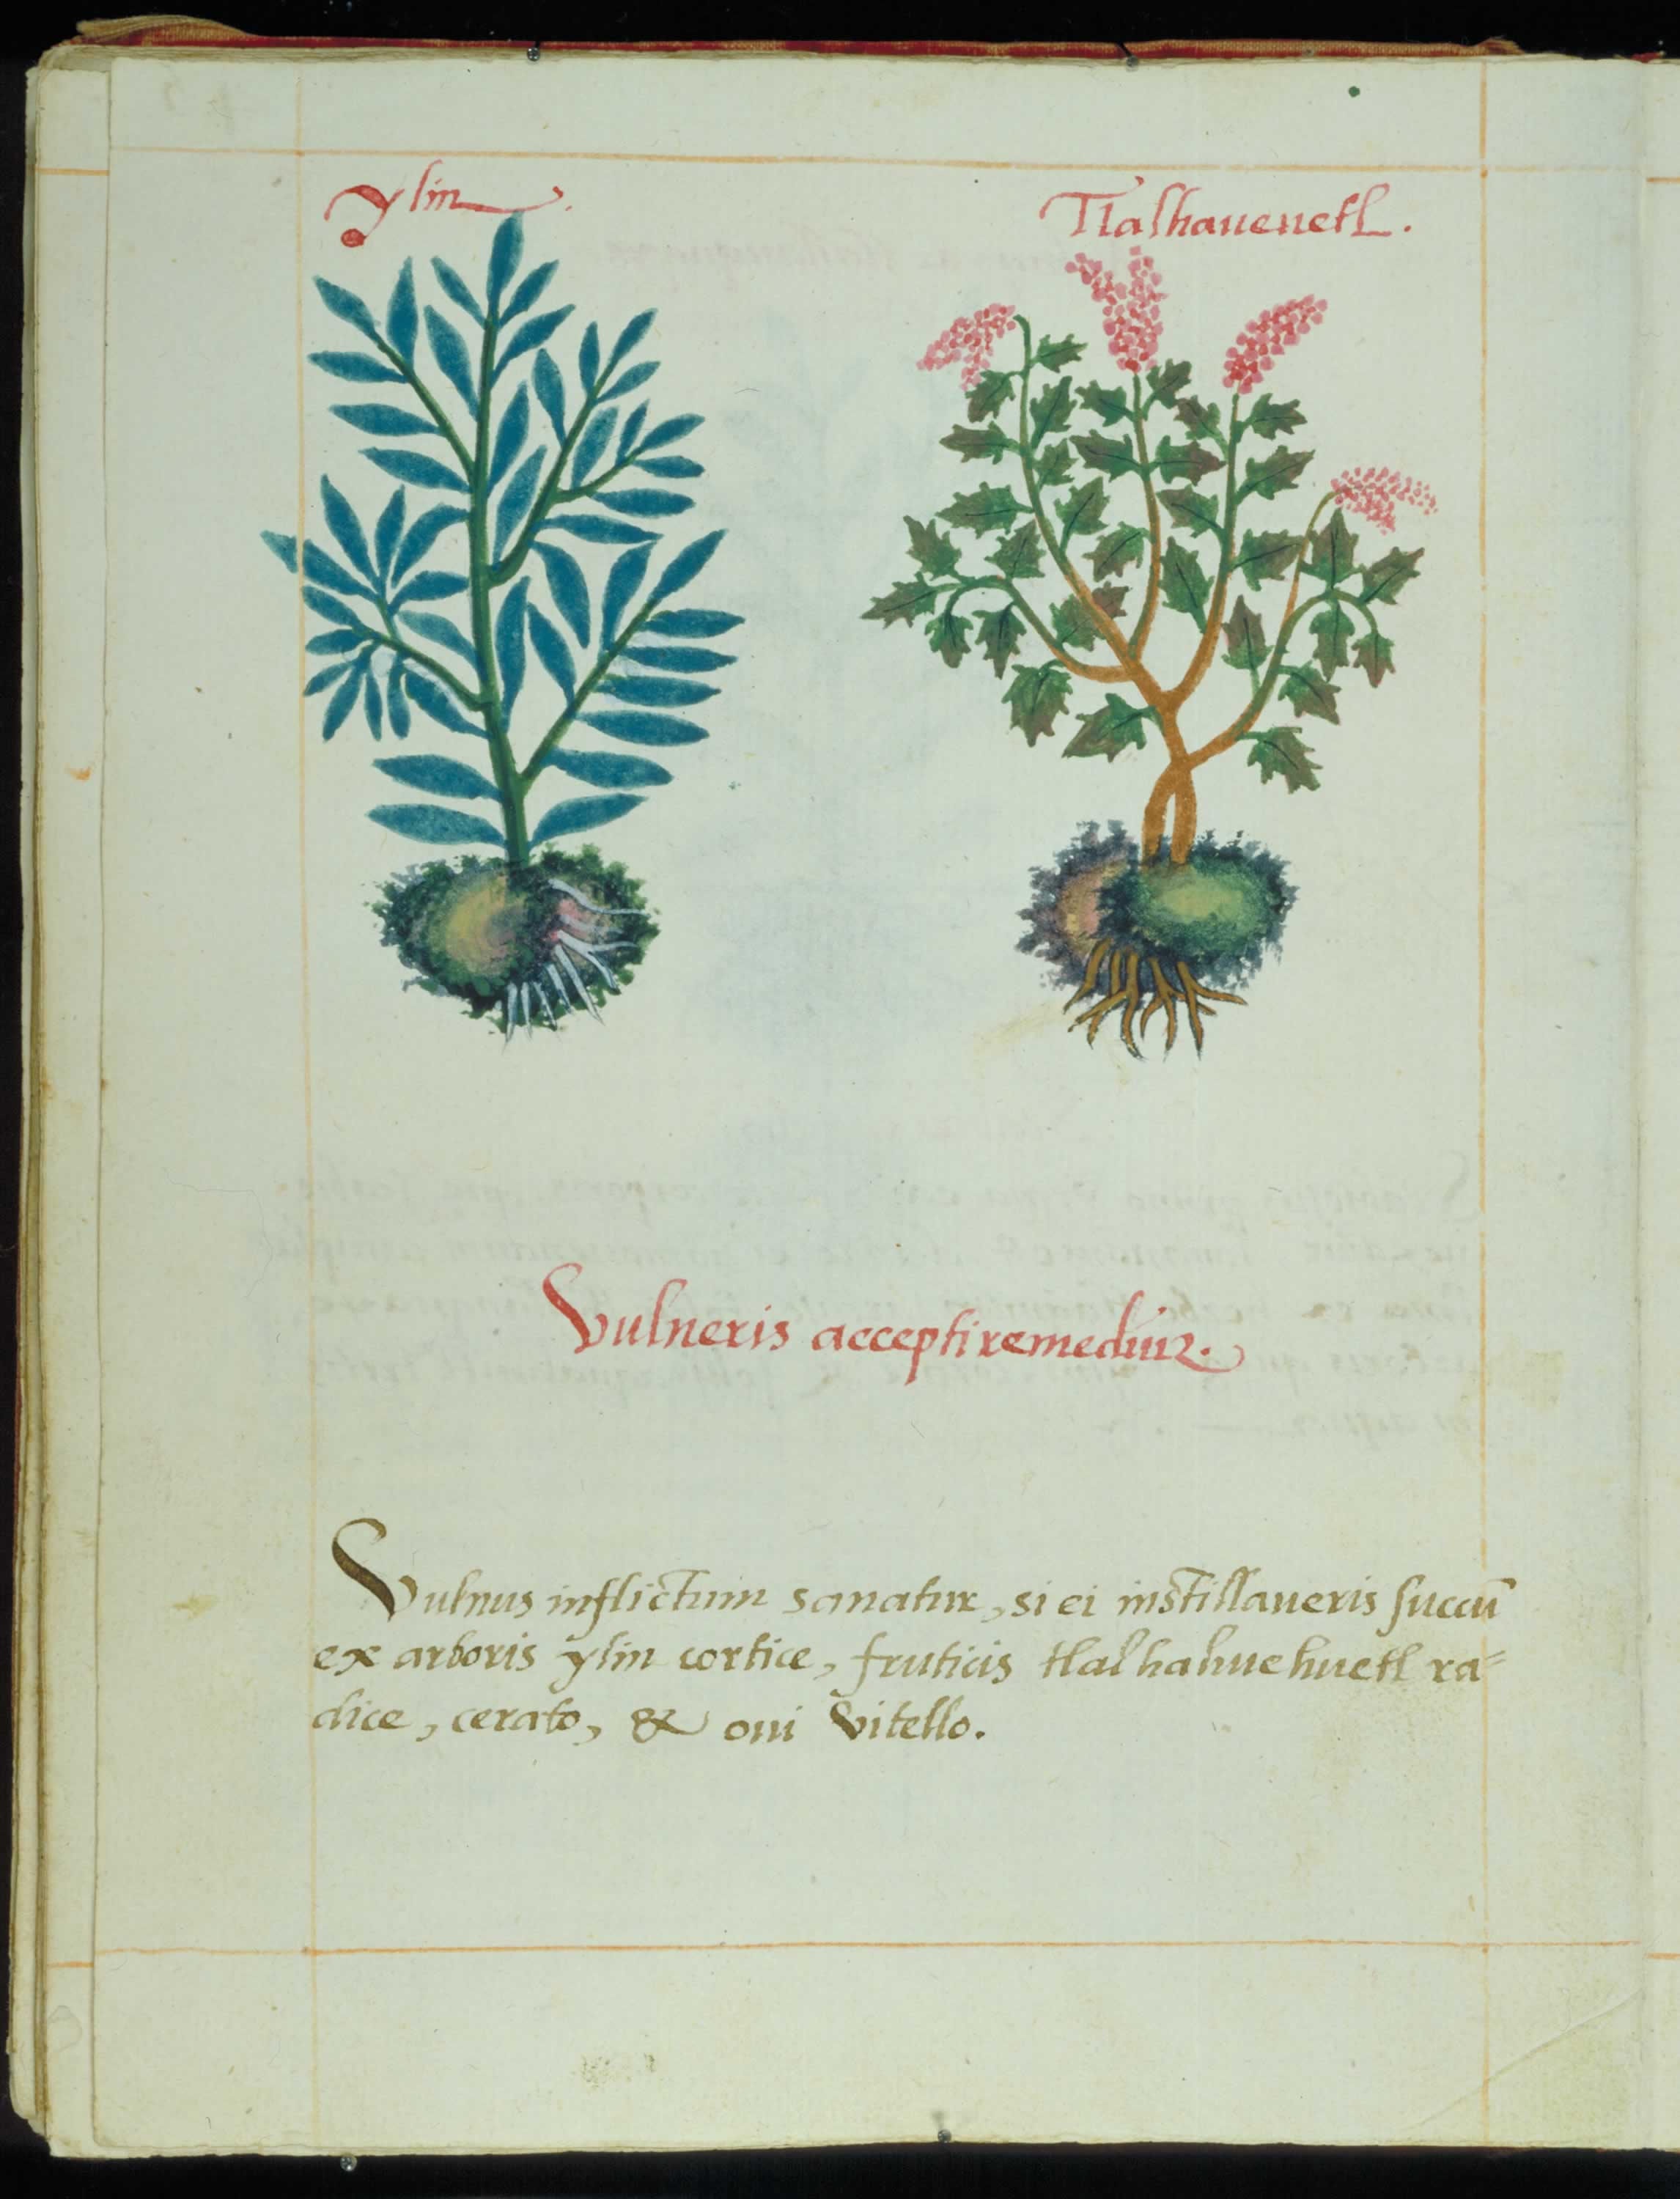 ylin.
Tlalhaueuetl.
Vulneris accepti remediũ.
Vulnus inflictum sanatur, si ei instillaueris succũ
ex arboris ylin cortice, fruticis tlalhahuehuetl ra=
dice, cerato, & oui vitello.